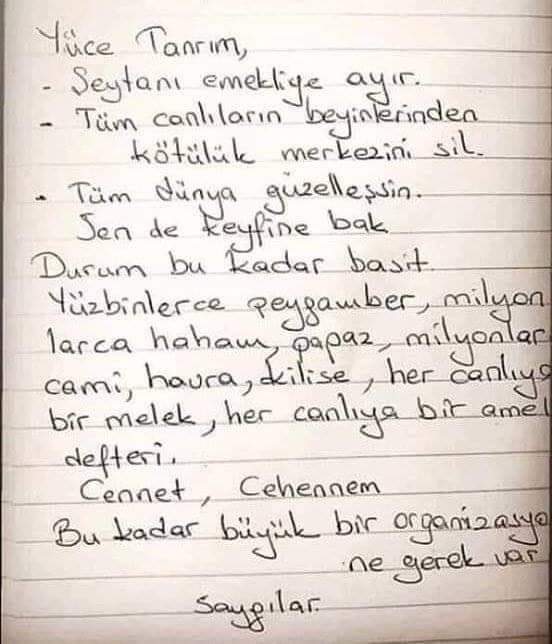 Yüce Tanrım,
- Şeytanı emekliye ayır.
- Tüm canlıların beyinlerinden
kötülük merkezini sil.
- Tüm dünya güzelleşsin.
Sen de keyfine bak
Durum bu kadar basit.
Yüzbinlerce peygamber, milyon
larca haham, papaz, milyonlar
cami, havra, kilise, her canlıya
bir melek, her canlıya bir amel
defteri.
Cennet, Cehennem
Bu kadar büyük bir organizasyo
ne gerek var
Saygılar.